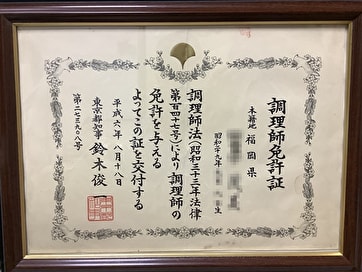 調理師免許証
本籍地 福岡県
昭和
年
生
調理師法(昭和三十三年法律
第百四十七号)により調理師の
免許を与える
よってこの証を交付する
平成六年 八月十八日
東京都知事 鈴木俊一